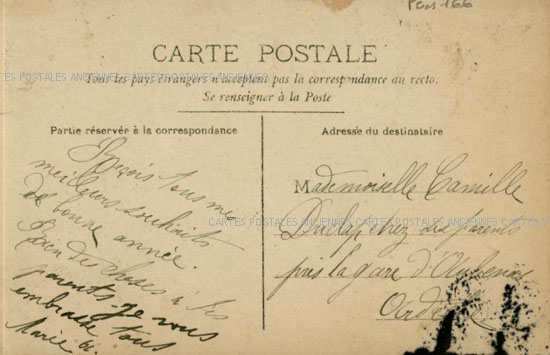 Pons 166
CARTE POSTALE
Tous les pays étrangers n'acceptent pas la correspondance au recto.
CARTES POSTALES ANCIENNES CARTES POSTALES ANCIENNES
Se renseigner à la Poste
Partie réservée à la correspondance
Reçois tous mes
meilleurs souhaits
de bonne année.
Bien des choses à tes
parents je vous
embrasse tous
Marie
Adresse du destinataire
Mademoiselle Camille
chez ses parents
CARTES POSTALES ANCIENNES CARTES POSTALES ANCIENNES CARTES
près la gare d'Aubenas
Ardèche